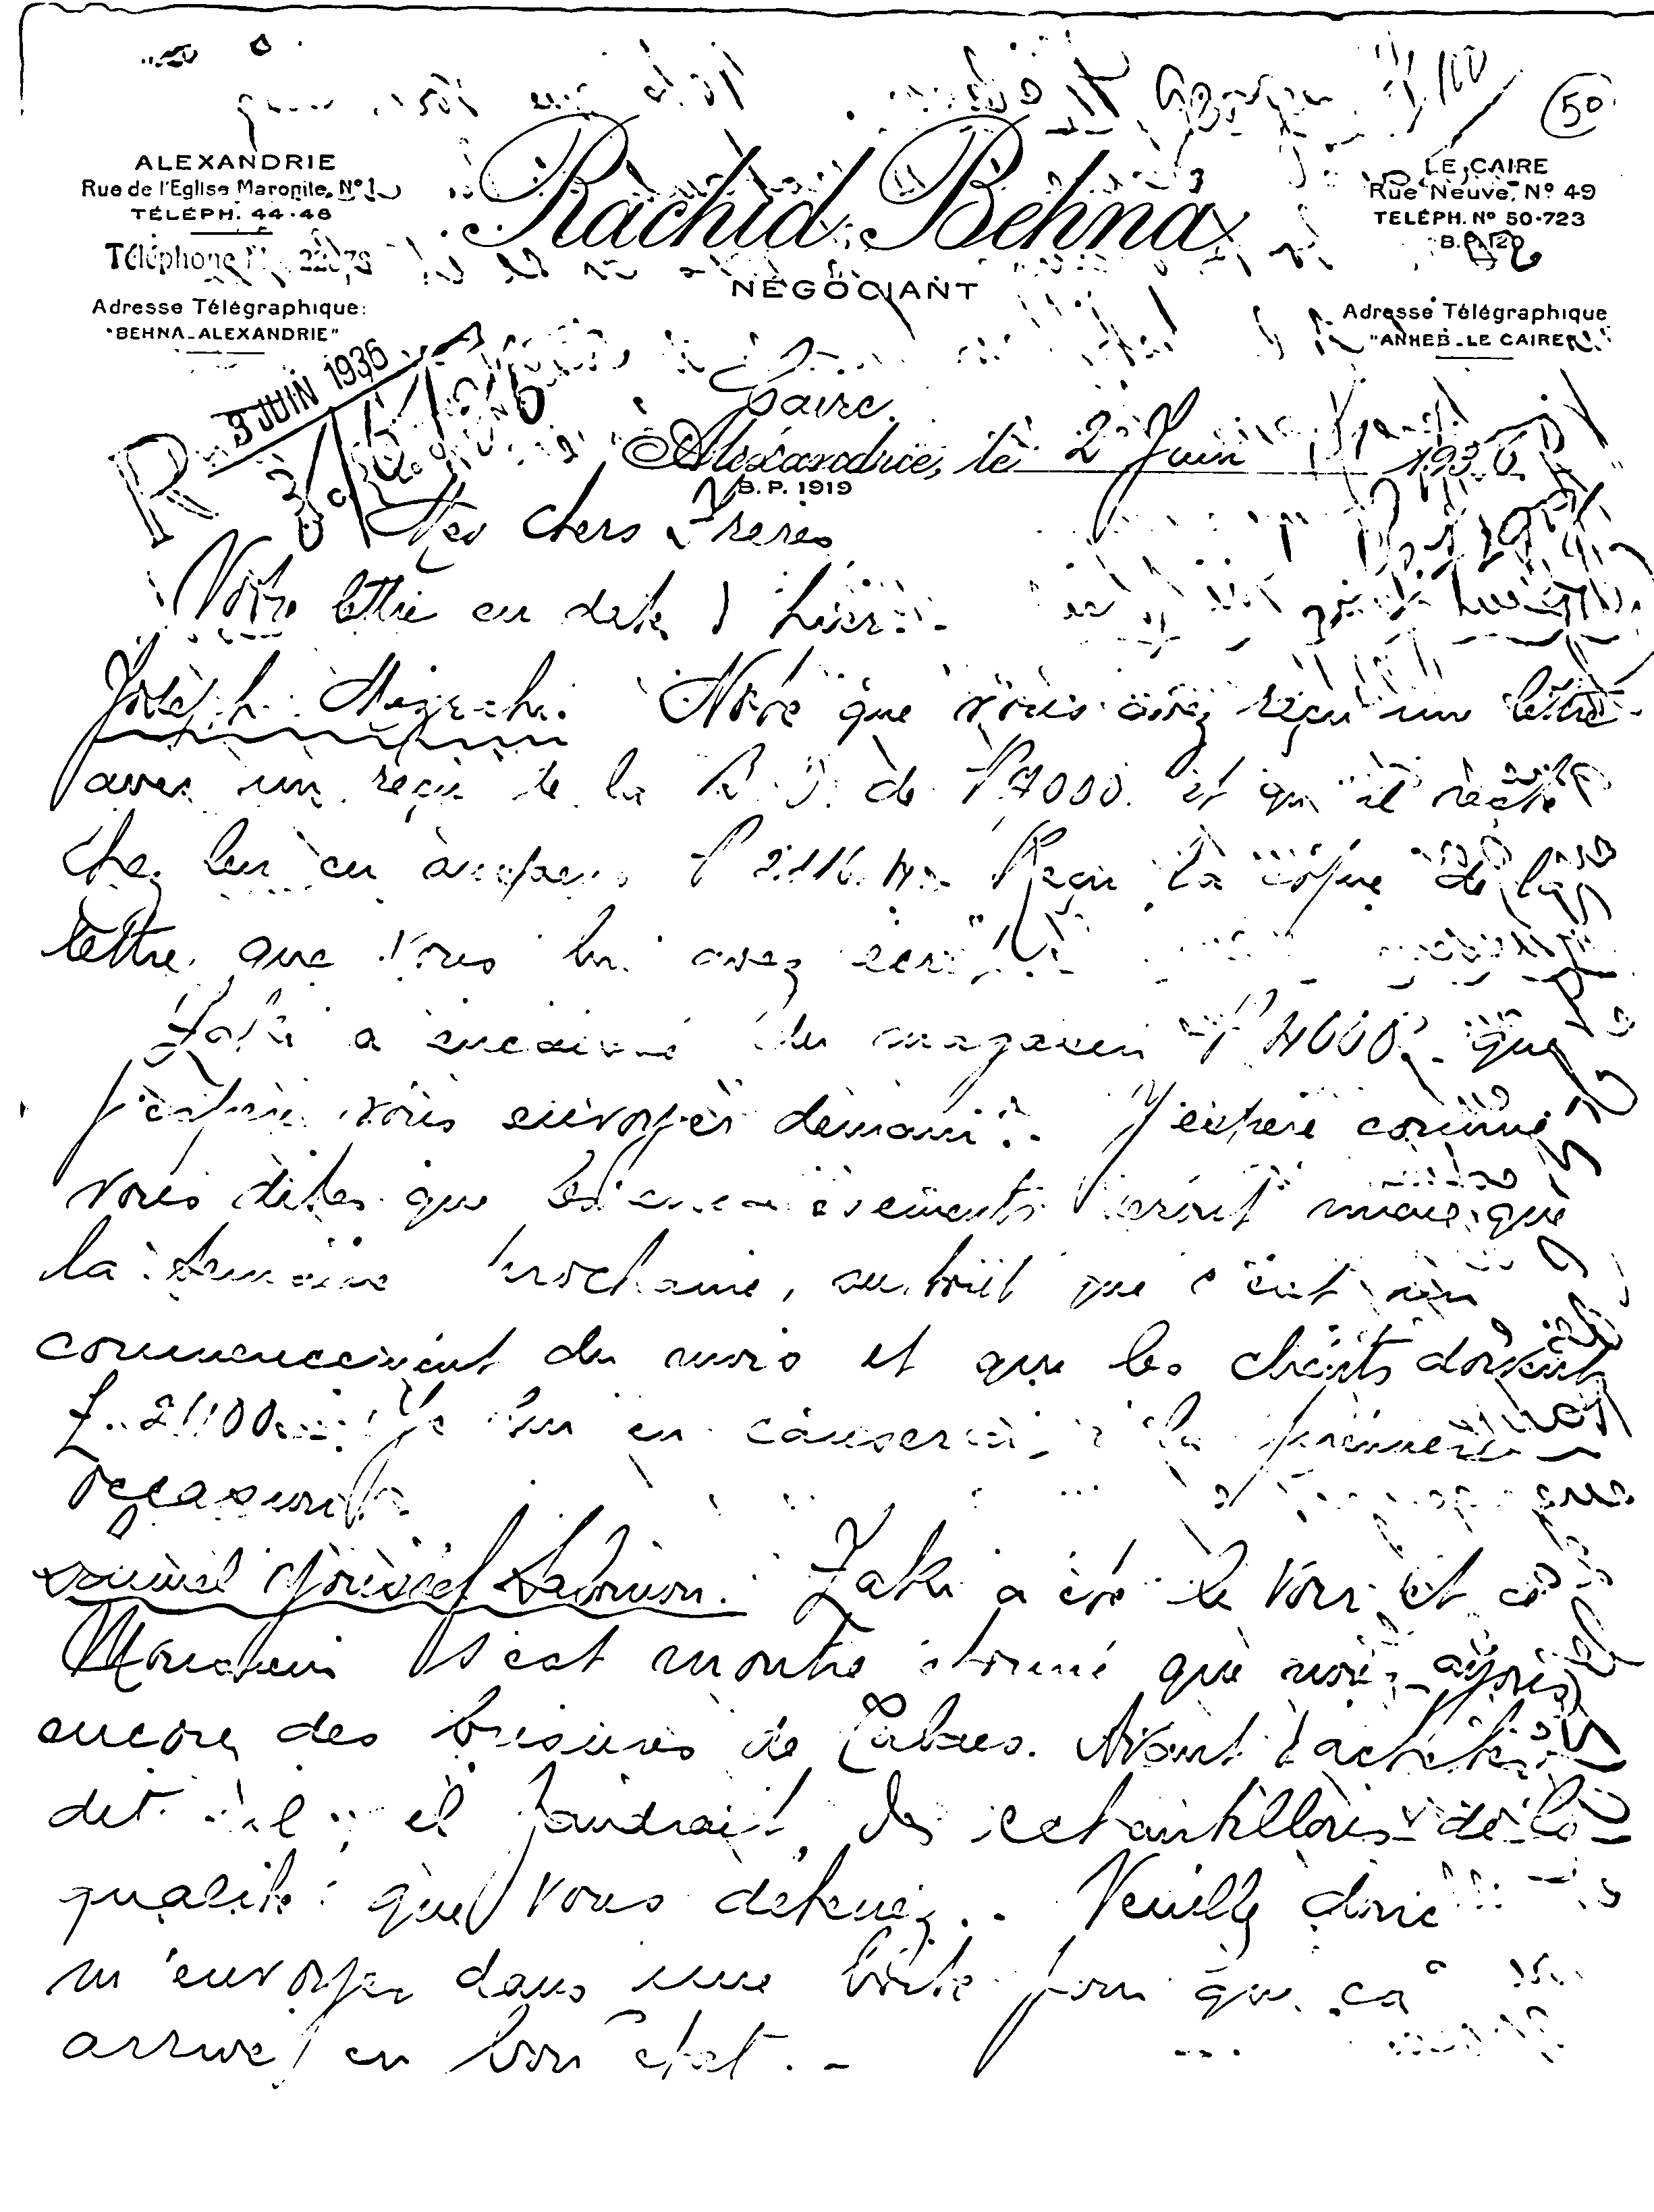 50
ALEXANDRIE
Rue de l'Eglise Maronite, Nº 1
TÉLÉPH. 44-46
Téléphone
Adresse Télégraphique:
"BEHNA-ALEXANDRIE"
Rachid Behna
NÉGOCIANT
LE CAIRE
Rue Neuve, Nº 49
TELÉPH. Nº 50-723
B.P. 120
Adresse Télégraphique
"ANHEB-LE CAIRE"
R 3 JUIN 1936
Caire
Alexandrie, le 2 Juin 1936
B. P. 1919
Mes chers Frères
Votre lettre en date d'hier
Joseph Noté que vous avez reçu une lettre
avec un reçu de la de 7000 et qu'il reste
chez lui en Reçu la copie de la
lettre que vous lui avez écrit
Zaki a encaissé du magasin 4000 que
j'espère vous envoyer demain. J'espère comme
vous dites que les encaissements seront mieux que
la semaine prochaine, surtout que c'est un
commencement du mois et que les clients doivent
Je lui en causerai à la première
occasion
Zaki a été le voir et ce
Monsieur s'est montré étonné que nous ayons
encore des brisures de Avant d'acheter
dit-il, il faudrait des echantillons de la
qualité que vous détenez. Veuillez donc
m'envoyer dans une boite pour que ça
arrive en bon état.-